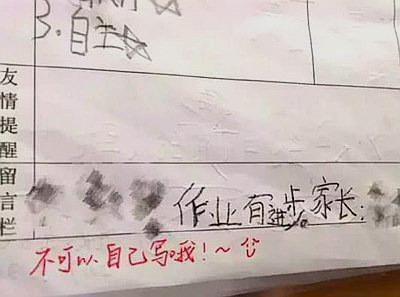 3.自主☆
友情提醒留言栏
作业有进步。家长:
不可以自己写哦!~